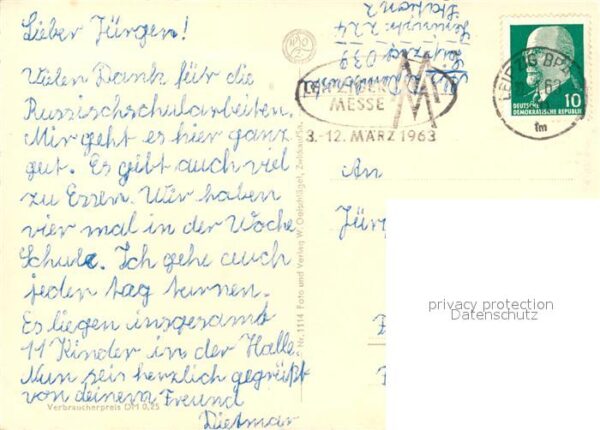 Lieber Jürgen!
Vielen Dank für die
Russischschularbeiten.
Mir geht es hier ganz
gut. Es gibt auch viel
zu Essen. Wir haben
vier mal in der Woche
Schule. Ich gehe auch
jeden tag turnen.
Es liegen insgesamt
11 Kinder in der Halle.
Nun seis herzlich gegrüßt
von deinem Freund
Dietmar
Verbraucherpreis DM 0,25
Nr. 1114 Foto und Verlag W. Oelschlägel,
Leipzig 039
LEIPZIGER
MESSE
3.-12. MÄRZ 1963
LEIPZIG BPA
fm
DEUTSCHE
DEMOKRATISCHE REPUBLIK
10
An
Jürg
privacy protection
Datenschutz